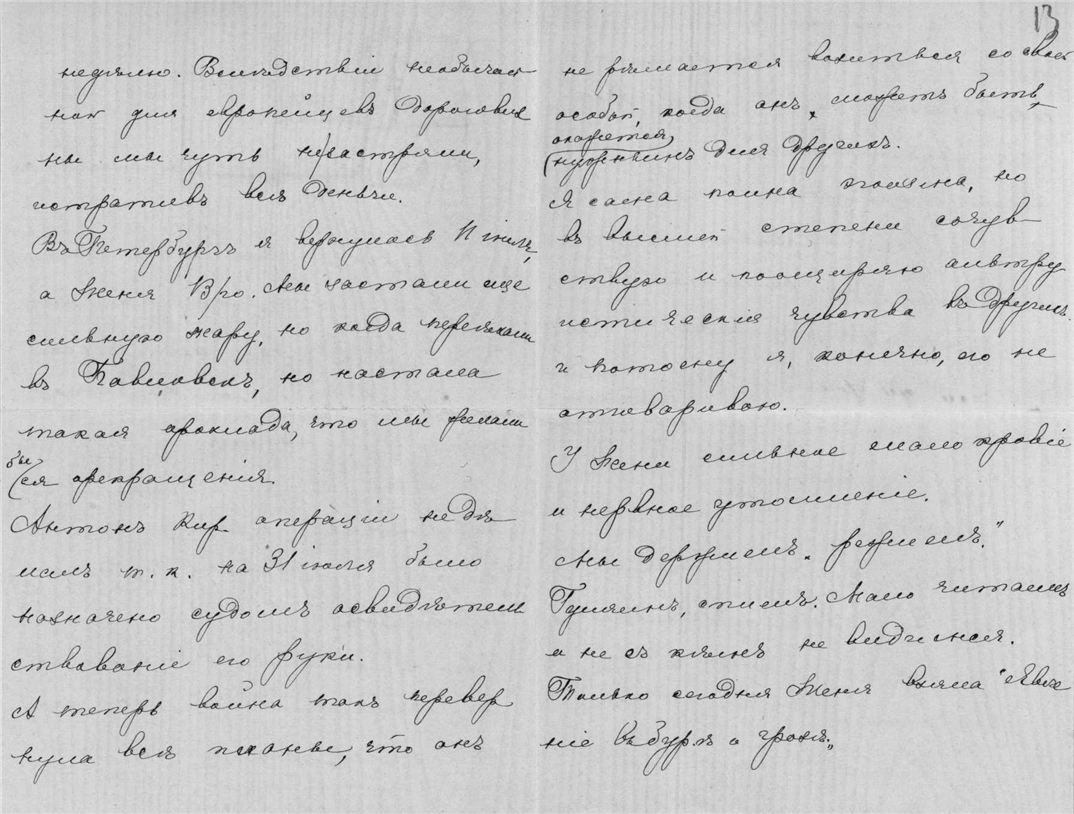 13
недѣлю. Вслѣдствіи необычай
ной для европейцевъ дороговиз
ны мы чуть не застряли,
истративъ всѣ деньги.
Въ Петербургъ я вернулась 11 іюля,
а Женя 13го. Мы застали еще
сильную жару, но когда переѣхали
въ Павловскъ, но настала
такая прохлада, что мы желали
бы
ея прекращенія.
Антонъ Кир. операціи не дѣ
лалъ т. к. на 31 іюля было
назначено судомъ освидѣтель
ствованіе его руки.
А теперь война такъ перевер
нула всѣ планы, что онъ
не рѣшается возиться со своей
особой, когда онъ, можетъ быть,
окажется
нужнымъ для другихъ.
Я сама полна эгоизма, но
въ высшей степени сочув
ствую и поощряю альтру
истическія чувства въ другихъ
и потому я, конечно, его не
отговариваю.
У Жени сильное малокровіе
и нервное утомленіе.
Мы держимъ „режимъ“.
Гуляемъ, спимъ. Мало читаемъ
и не съ кѣмъ не видимся.
Только сегодня Женя взяла "Явле
ніе въ бурѣ и грозѣ„